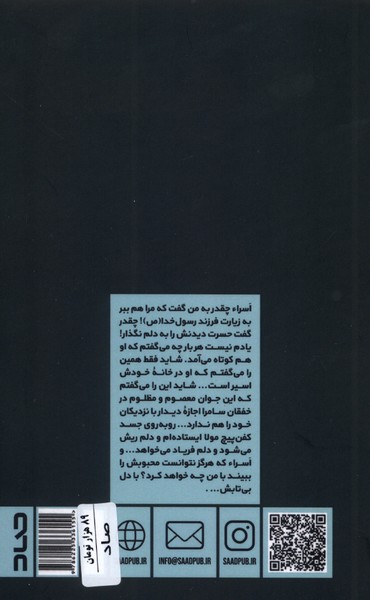 اَسراء چقدر به من گفت که مرا هم ببر
به زیارت فرزند رسول‌خدا(ص)! چقدر
گفت حسرت دیدنش را به دلم نگذار!
یادم نیست هر بار چه می‌گفتم که او
هم کوتاه می‌آمد. شاید فقط همین
را می‌گفتم که او در خانهٔ خودش
اسیر است... شاید این را می‌گفتم
که این جوان معصوم و مظلوم در
خفقان سامرا اجازهٔ دیدار با نزدیکان
خود را هم ندارد... روبه‌روی جسد
کفن‌پیچ مولا ایستاده‌ام و دلم ریش
می‌شود و دلم فریاد می‌خواهد... و
اَسراء که هرگز نتوانست محبوبش را
ببیند با من چه خواهد کرد؟ با دل
بی‌تابش....
صاد
صاد
۸۹ هزار تومان
SAADPUB.IR
INFO@SAADPUB.IR
SAADPUB.IR